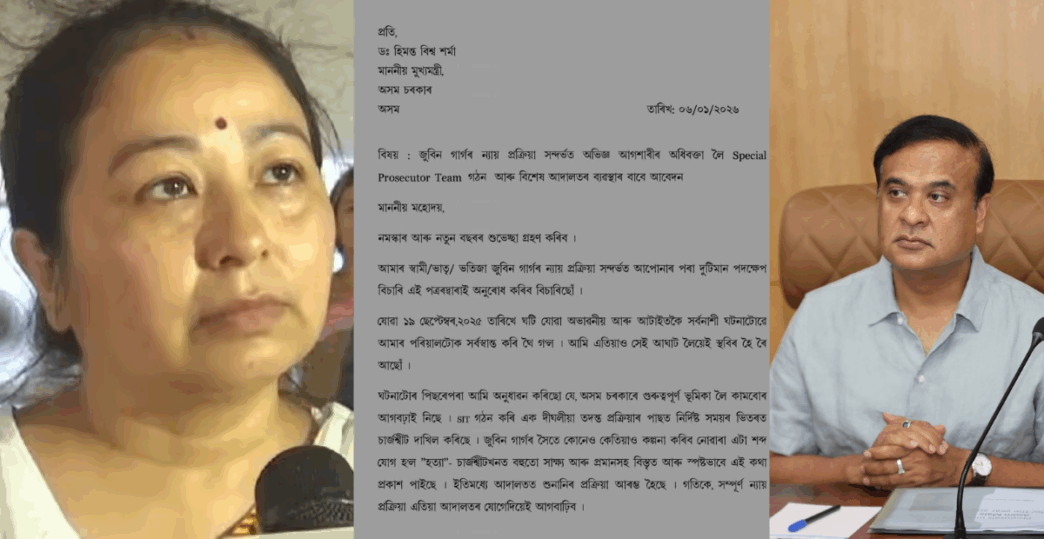 প্ৰতি,
ডঃ হিমন্ত বিশ্ব শৰ্মা
মাননীয় মুখ্যমন্ত্ৰী,
অসম চৰকাৰ
অসম
তাৰিখ: ০৬/০১/২০২৬
বিষয় : জুবিন গাৰ্গৰ ন্যায় প্ৰক্ৰিয়া সন্দৰ্ভত অভিজ্ঞ আগশাৰীৰ অধিবক্তা লৈ Special
Prosecutor Team গঠন আৰু বিশেষ আদালতৰ ব্যৱস্থাৰ বাবে আবেদন
মাননীয় মহোদয়,
নমস্কাৰ আৰু নতুন বছৰৰ শুভেচ্ছা গ্ৰহণ কৰিব ।
আমাৰ স্বামী/ভাতৃ/ ভতিজা জুবিন গাৰ্গৰ ন্যায় প্ৰক্ৰিয়া সন্দৰ্ভত আপোনাৰ পৰা দুটিমান পদক্ষেপ
বিচাৰি এই পত্ৰৰদ্বাৰাই অনুৰোধ কৰিব বিচাৰিছোঁ ।
যোৱা ১৯ ছেপ্টেম্বৰ,২০২৫ তাৰিখে ঘটি যোৱা অভাৱনীয় আৰু আটাইতকৈ সৰ্বনাশী ঘটনাটোৱে
আমাৰ পৰিয়ালটোক সৰ্বস্বান্ত কৰি থৈ গ'ল । আমি এতিয়াও সেই আঘাট লৈয়েই স্থবিৰ হৈ ৰৈ
আছোঁ ।
ঘটনাটোৰ পিছৰেপৰা আমি অনুধাৱন কৰিছো যে, অসম চৰকাৰে গুৰুত্বপূৰ্ণ ভূমিকা লৈ কামবোৰ
আগবঢ়াই নিছে । SIT গঠন কৰি এক দীঘলীয়া তদন্ত প্ৰক্ৰিয়াৰ পাছত নিৰ্দিষ্ট সময়ৰ ভিতৰত
চাৰ্জশ্বীট দাখিল কৰিছে । জুবিন গাৰ্গৰ সৈতে কোনেও কেতিয়াও কল্পনা কৰিব নোৱাৰা এটা শব্দ
যোগ হ'ল "হত্যা"- চাৰ্জশ্বীটখনত বহুতো সাক্ষ্য আৰু প্ৰমানসহ বিস্তৃত আৰু স্পষ্টভাৱে এই কথা
প্ৰকাশ পাইছে । ইতিমধ্যে আদালতত শুনানিৰ প্ৰক্ৰিয়া আৰম্ভ হৈছে । গতিকে, সম্পূৰ্ণ ন্যায়
প্ৰক্ৰিয়া এতিয়া আদালতৰ যোগেদিয়েই আগবাঢ়িব ।